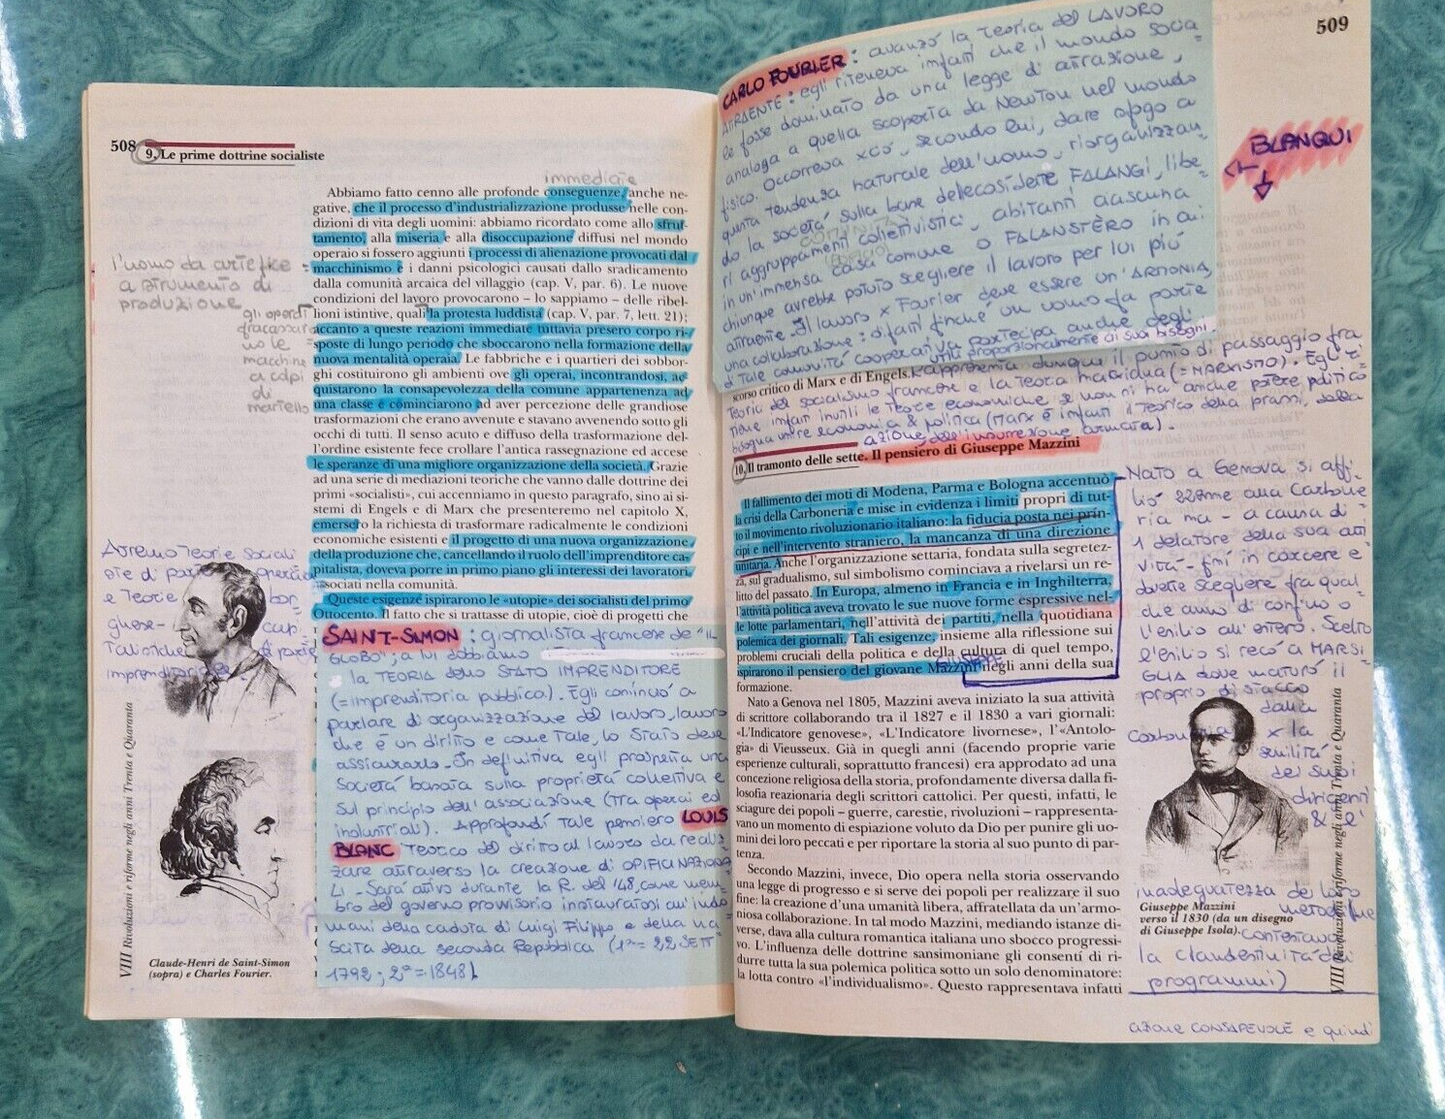 508
9. Le prime dottrine socialiste
immediate
Abbiamo fatto cenno alle profonde conseguenze, anche ne-
gative, che il processo d'industrializzazione produsse nelle con-
dizioni di vita degli uomini: abbiamo ricordato come allo sfrut-
tamento, alla miseria e alla disoccupazione diffusi nel mondo
operaio si fossero aggiunti i processi di alienazione provocati dal
macchinismo e i danni psicologici causati dallo sradicamento
dalla comunità arcaica del villaggio (cap. V, par. 6). Le nuove
condizioni del lavoro provocarono – lo sappiamo – delle ribel-
lioni istintive, quali la protesta luddista (cap. V, par. 7, lett. 21);
accanto a queste reazioni immediate tuttavia presero corpo ri-
sposte di lungo periodo che sboccarono nella formazione della
nuova mentalità operaia. Le fabbriche e i quartieri dei sobbor-
ghi costituirono gli ambienti ove gli operai, incontrandosi, ac-
quistarono la consapevolezza della comune appartenenza ad
una classe e cominciarono ad aver percezione delle grandiose
trasformazioni che erano avvenute e stavano avvenendo sotto gli
occhi di tutti. Il senso acuto e diffuso della trasformazione del-
l'ordine esistente fece crollare l'antica rassegnazione ed accese
le speranze di una migliore organizzazione della società. Grazie
ad una serie di mediazioni teoriche che vanno dalle dottrine dei
primi «socialisti», cui accenniamo in questo paragrafo, sino ai si-
stemi di Engels e di Marx che presenteremo nel capitolo X,
emerse la richiesta di trasformare radicalmente le condizioni
economiche esistenti e il progetto di una nuova organizzazione
della produzione che, cancellando il ruolo dell'imprenditore ca-
pitalista, doveva porre in primo piano gli interessi dei lavoratori
associati nella comunità.
Queste esigenze ispirarono le «utopie» dei socialisti del primo
Ottocento. Il fatto che si trattasse di utopie, cioè di progetti che
l'uomo da artefice
a strumento di
produzione
gli operai
fracassar
no le
macchine
a colpi
di
martello
Avremo Teorie sociali
ste di parte operaia
e Teorie bor
ghesi-cap
Talistiche di parte
imprenditoriale
SAINT-SIMON: giornalista francese de "IL
GLOBO"; a lui dobbiamo
la TEORIA dello STATO IMPRENDITORE
(=imprenditoria pubblica). Egli cominciò a
parlare di organizzazione del lavoro, lavoro
che è un diritto e come Tale, lo Stato deve
assicurarlo. In definitiva egli prospetta una
società basata sulla proprietà collettiva e
sul principio dell'associazione (Tra operai ed
industriali). Approfondì Tale pensiero LOUIS
BLANC Teorico del diritto al lavoro da realiz
zare attraverso la creazione di OPIFICI NAZIONA
LI. Sarà attivo durante la R. del '48, come mem
bro del governo provvisorio instauratosi all'indo
mani della caduta di Luigi Filippo e della na
scita della seconda Repubblica (1ª= 22 SETT
1792; 2ª=1848)
VIII Rivoluzioni e riforme negli anni Trenta e Quaranta
Claude-Henri de Saint-Simon
(sopra) e Charles Fourier.
509
CARLO FOURIER: avanzò la Teoria del LAVORO
ATTRAENTE: egli riteneva infatti che il mondo socia
le fosse dominato da una legge di attrazione,
analoga a quella scoperta da Newton nel mondo
fisico. Occorreva xciò, secondo lui, dare sfogo a
questa tendenza naturale dell'uomo, riorganizzan
do la società sulla base delle cosidette FALANGI, libe
ri aggruppamenti collettivistici, abitanti ciascuna
in un'immensa casa comune o FALANSTÈRO in cui
chiunque avrebbe potuto scegliere il lavoro per lui più
attraente. Il lavoro x Fourier deve essere un'ARMONIA,
una collaborazione: difatti finché un uomo fa parte
di Tale comunità cooperativa partecipa anche degli
utili proporzionalmente ai suoi bisogni.
BLANQUI
scorso critico di Marx e di Engels.
rappresenta dunque il punto di passaggio fra
Teoria del socialismo francese e la Teoria marxista (=MARXISMO). Egli ri
tiene infatti inutili le Teorie economiche se non si ha anche potere politico
bisogna unire economia & politica (Marx è infatti il Teorico della prassi, della
azione, dell'insurrezione armata).
10. Il tramonto delle sette. Il pensiero di Giuseppe Mazzini
Il fallimento dei moti di Modena, Parma e Bologna accentuò
la crisi della Carboneria e mise in evidenza i limiti propri di tut-
to il movimento rivoluzionario italiano: la fiducia posta nei prin-
cipi e nell'intervento straniero, la mancanza di una direzione
unitaria. Anche l'organizzazione settaria, fondata sulla segretez-
za, sul gradualismo, sul simbolismo cominciava a rivelarsi un re-
litto del passato. In Europa, almeno in Francia e in Inghilterra,
l'attività politica aveva trovato le sue nuove forme espressive nel-
le lotte parlamentari, nell'attività dei partiti, nella quotidiana
polemica dei giornali. Tali esigenze, insieme alla riflessione sui
problemi cruciali della politica e della cultura di quel tempo,
ispirarono il pensiero del giovane Mazzini negli anni della sua
formazione.
Nato a Genova nel 1805, Mazzini aveva iniziato la sua attività
di scrittore collaborando tra il 1827 e il 1830 a vari giornali:
«L'Indicatore genovese», «L'Indicatore livornese», l'«Antolo-
gia» di Vieusseux. Già in quegli anni (facendo proprie varie
esperienze culturali, soprattutto francesi) era approdato ad una
concezione religiosa della storia, profondamente diversa dalla fi-
losofia reazionaria degli scrittori cattolici. Per questi, infatti, le
sciagure dei popoli – guerre, carestie, rivoluzioni – rappresenta-
vano un momento di espiazione voluto da Dio per punire gli uo-
mini dei loro peccati e per riportare la storia al suo punto di par-
tenza.
Secondo Mazzini, invece, Dio opera nella storia osservando
una legge di progresso e si serve dei popoli per realizzare il suo
fine: la creazione d'una umanità libera, affratellata da un'armo-
niosa collaborazione. In tal modo Mazzini, mediando istanze di-
verse, dava alla cultura romantica italiana uno sbocco progressi-
vo. L'influenza delle dottrine sansimoniane gli consentì di ri-
durre tutta la sua polemica politica sotto un solo denominatore:
la lotta contro «l'individualismo». Questo rappresentava infatti
Nato a Genova si affi
liò alla Carbone
ria ma - a causa di
1 delatore della sua atti
vità - finì in carcere e
dovette scegliere fra qual
che anno di confino o
l'esilio all'estero. Scelto
l'esilio si recò a MARSI
GLIA dove maturò il
proprio distacco
dalla
Carboneria x la
senilità
dei suoi
dirigenti
& l'
inadeguatezza dei loro
metodi (ne
contestava
la clandestinità dei
programmi)
Giuseppe Mazzini
verso il 1830 (da un disegno
di Giuseppe Isola).
VIII Rivoluzioni e riforme negli anni Trenta e Quaranta
azione CONSAPEVOLE e quindi